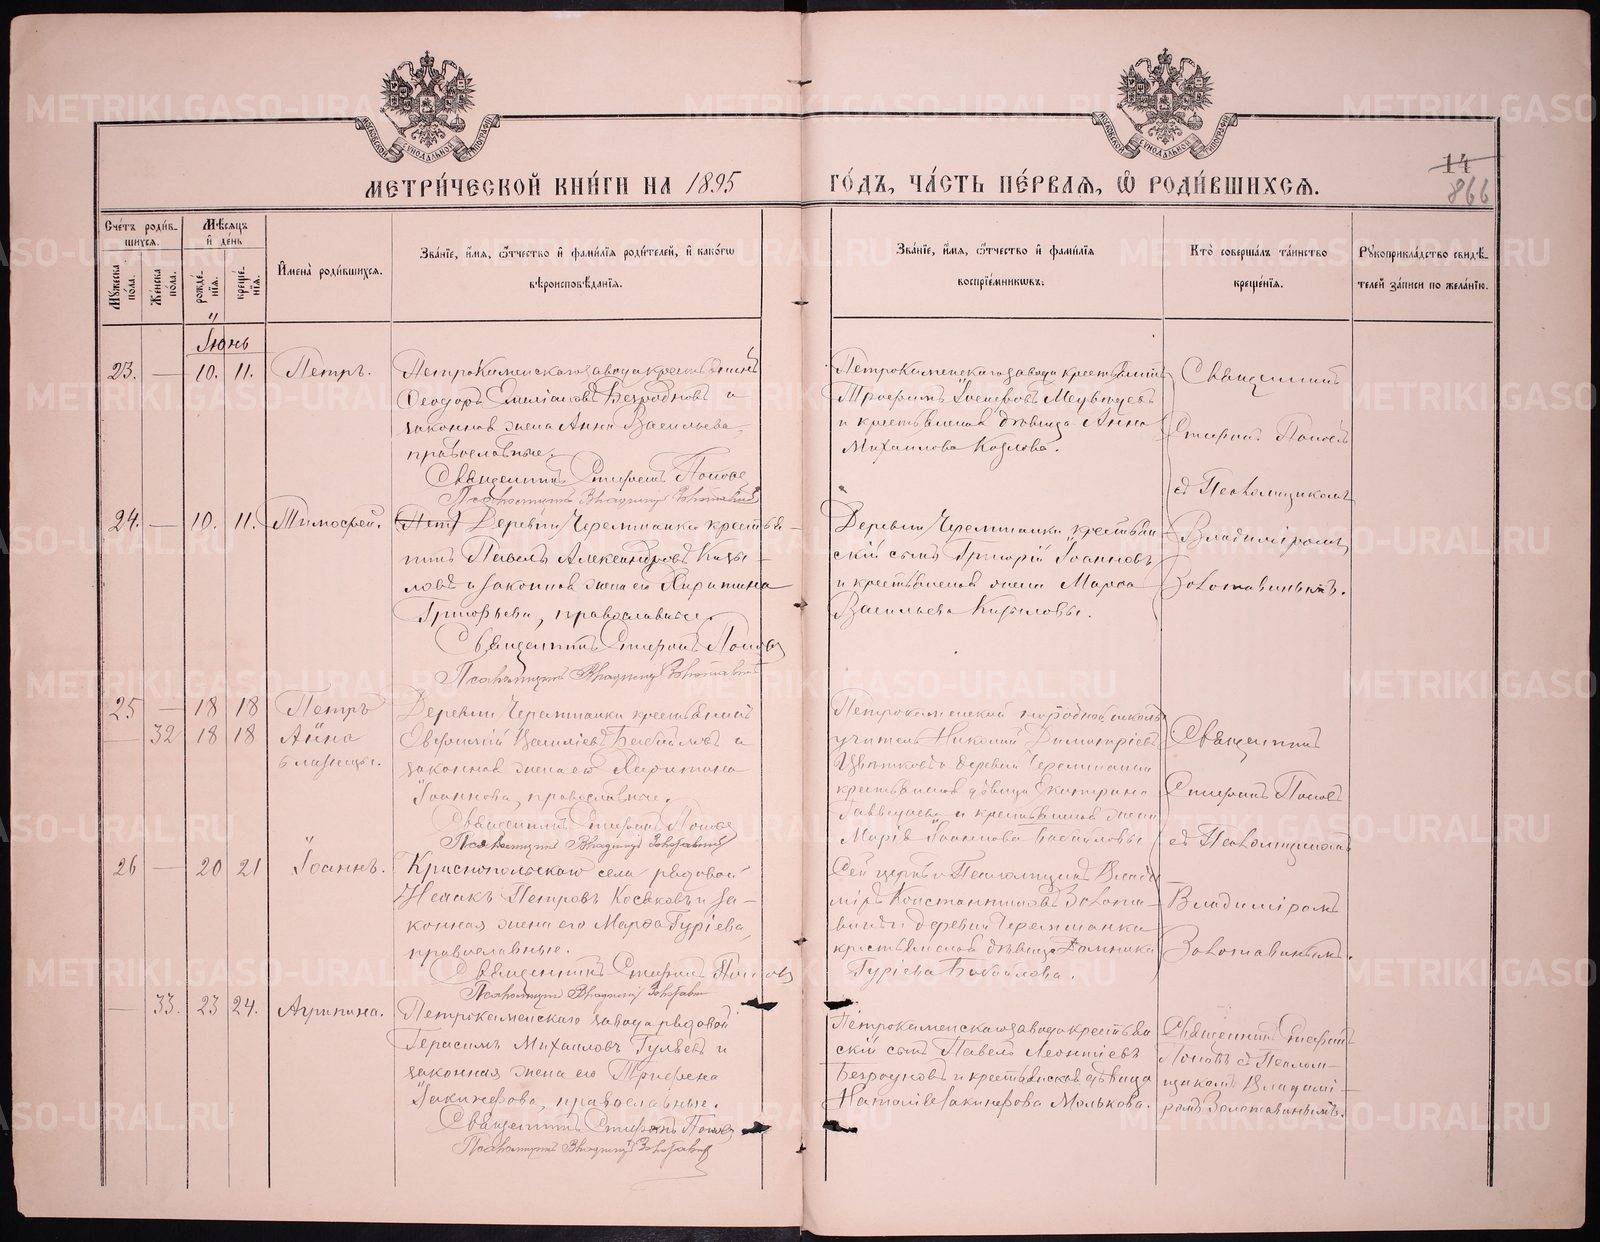 МЕТРИ́ЧЕСКОЙ КНИ́ГИ НА 1895
ГО́ДЪ, ЧА́СТЬ ПЕ́РВАЯ, Ѡ РОДИ́ВШИХСЯ.
14
866
Сче́тъ роди́в-
шихся.
Мѣ́сяцъ
и́ де́нь
Му́жеска по́ла.
Же́нска по́ла.
рожде́-нїя.
креще́-нїя.
И́мена̀ роди́вшихся.
Зва́нїе, и́мя, ѻ́тчество и́ фами́лїя роди́телей, и́ како́гѡ
вѣроисповѣ́данїя.
Зва́нїе, и́мя, ѻ́тчество и́ фами́лїя
воспрїе́мниковъ.
Кто̀ соверша́лъ та́инство
креще́нїя.
Рукоприкла́дство свидѣ́-
телей за́писи по жела́нїю.
Іюнь
23. — 10. 11. Петръ.
Петрокаменскаго завода крестьянинъ
Ѳеодоръ Емиліановъ Безродновъ и
законная жена Анна Васильева,
православные.
Священникъ Стефанъ Поповъ
Псаломщикъ Владиміръ Золотавинъ
Петрокаменскаго завода крестьянинъ
Трофимъ Медвѣдевъ
и крестьянская дѣвица Анна
Михаилова Козлова.
Священникъ
Стефанъ Поповъ
съ Псаломщикомъ
Владиміромъ
Золотавинымъ.
24. — 10. 11. Тимоѳей.
Деревни Черемшанки крестья-
нинъ Павелъ Александровъ Кары-
ловъ и законная жена его Харитина
Григорьева, православные.
Священникъ Стефанъ Поповъ
Псаломщикъ Владиміръ Золотавинъ
Деревни Черемшанки крестьян-
скій сынъ Григорій Іоанновъ
и крестьянская жена Марѳа
Васильева
25 — 18 18 Петръ
— 32 18 18 Анна
близнецы.
Деревни Черемшанки крестьянинъ
Евфимій Василіевъ и
законная жена его Харитина
Іоаннова, православные.
Священникъ Стефанъ Поповъ
Псаломщикъ Владиміръ Золотавинъ
Петрокаменской народной школы
учитель Николай Димитріевъ
Цвѣтковъ и деревни Черемшанки
крестьянская дѣвица Екатерина
и крестьянская жена
Марія Іоаннова
Священникъ
Стефанъ Поповъ
съ Псаломщикомъ
Владиміромъ
Золотавинымъ.
26 — 20 21 Іоаннъ.
Краснопольскаго села рядовой
Исаакъ Петровъ Косяковъ и за-
конная жена его Марѳа Гуріева,
православные.
Священникъ Стефанъ Поповъ
Псаломщикъ Владиміръ Золотавинъ
Сей церкви Псаломщикъ Влади-
міръ Константиновъ Золота-
винъ и деревни Черемшанки
крестьянская дѣвица Домника
Гуріева
— 33. 23 24. Агрипина.
Петрокаменскаго завода рядовой
Герасимъ Михаиловъ Гуляевъ и
законная жена его Трифена
Іакинфова, православные.
Священникъ Стефанъ Поповъ
Псаломщикъ Владиміръ Золотавинъ
Петрокаменскаго завода крестьян-
скій сынъ Павелъ Леонтіевъ
Безродновъ и крестьянская дѣвица
Наталія Іакинфова Молькова.
Священникъ Стефанъ
Поповъ съ Псалом-
щикомъ Владимі-
ромъ Золотавинымъ.
METRIKI.GASO-URAL.RU